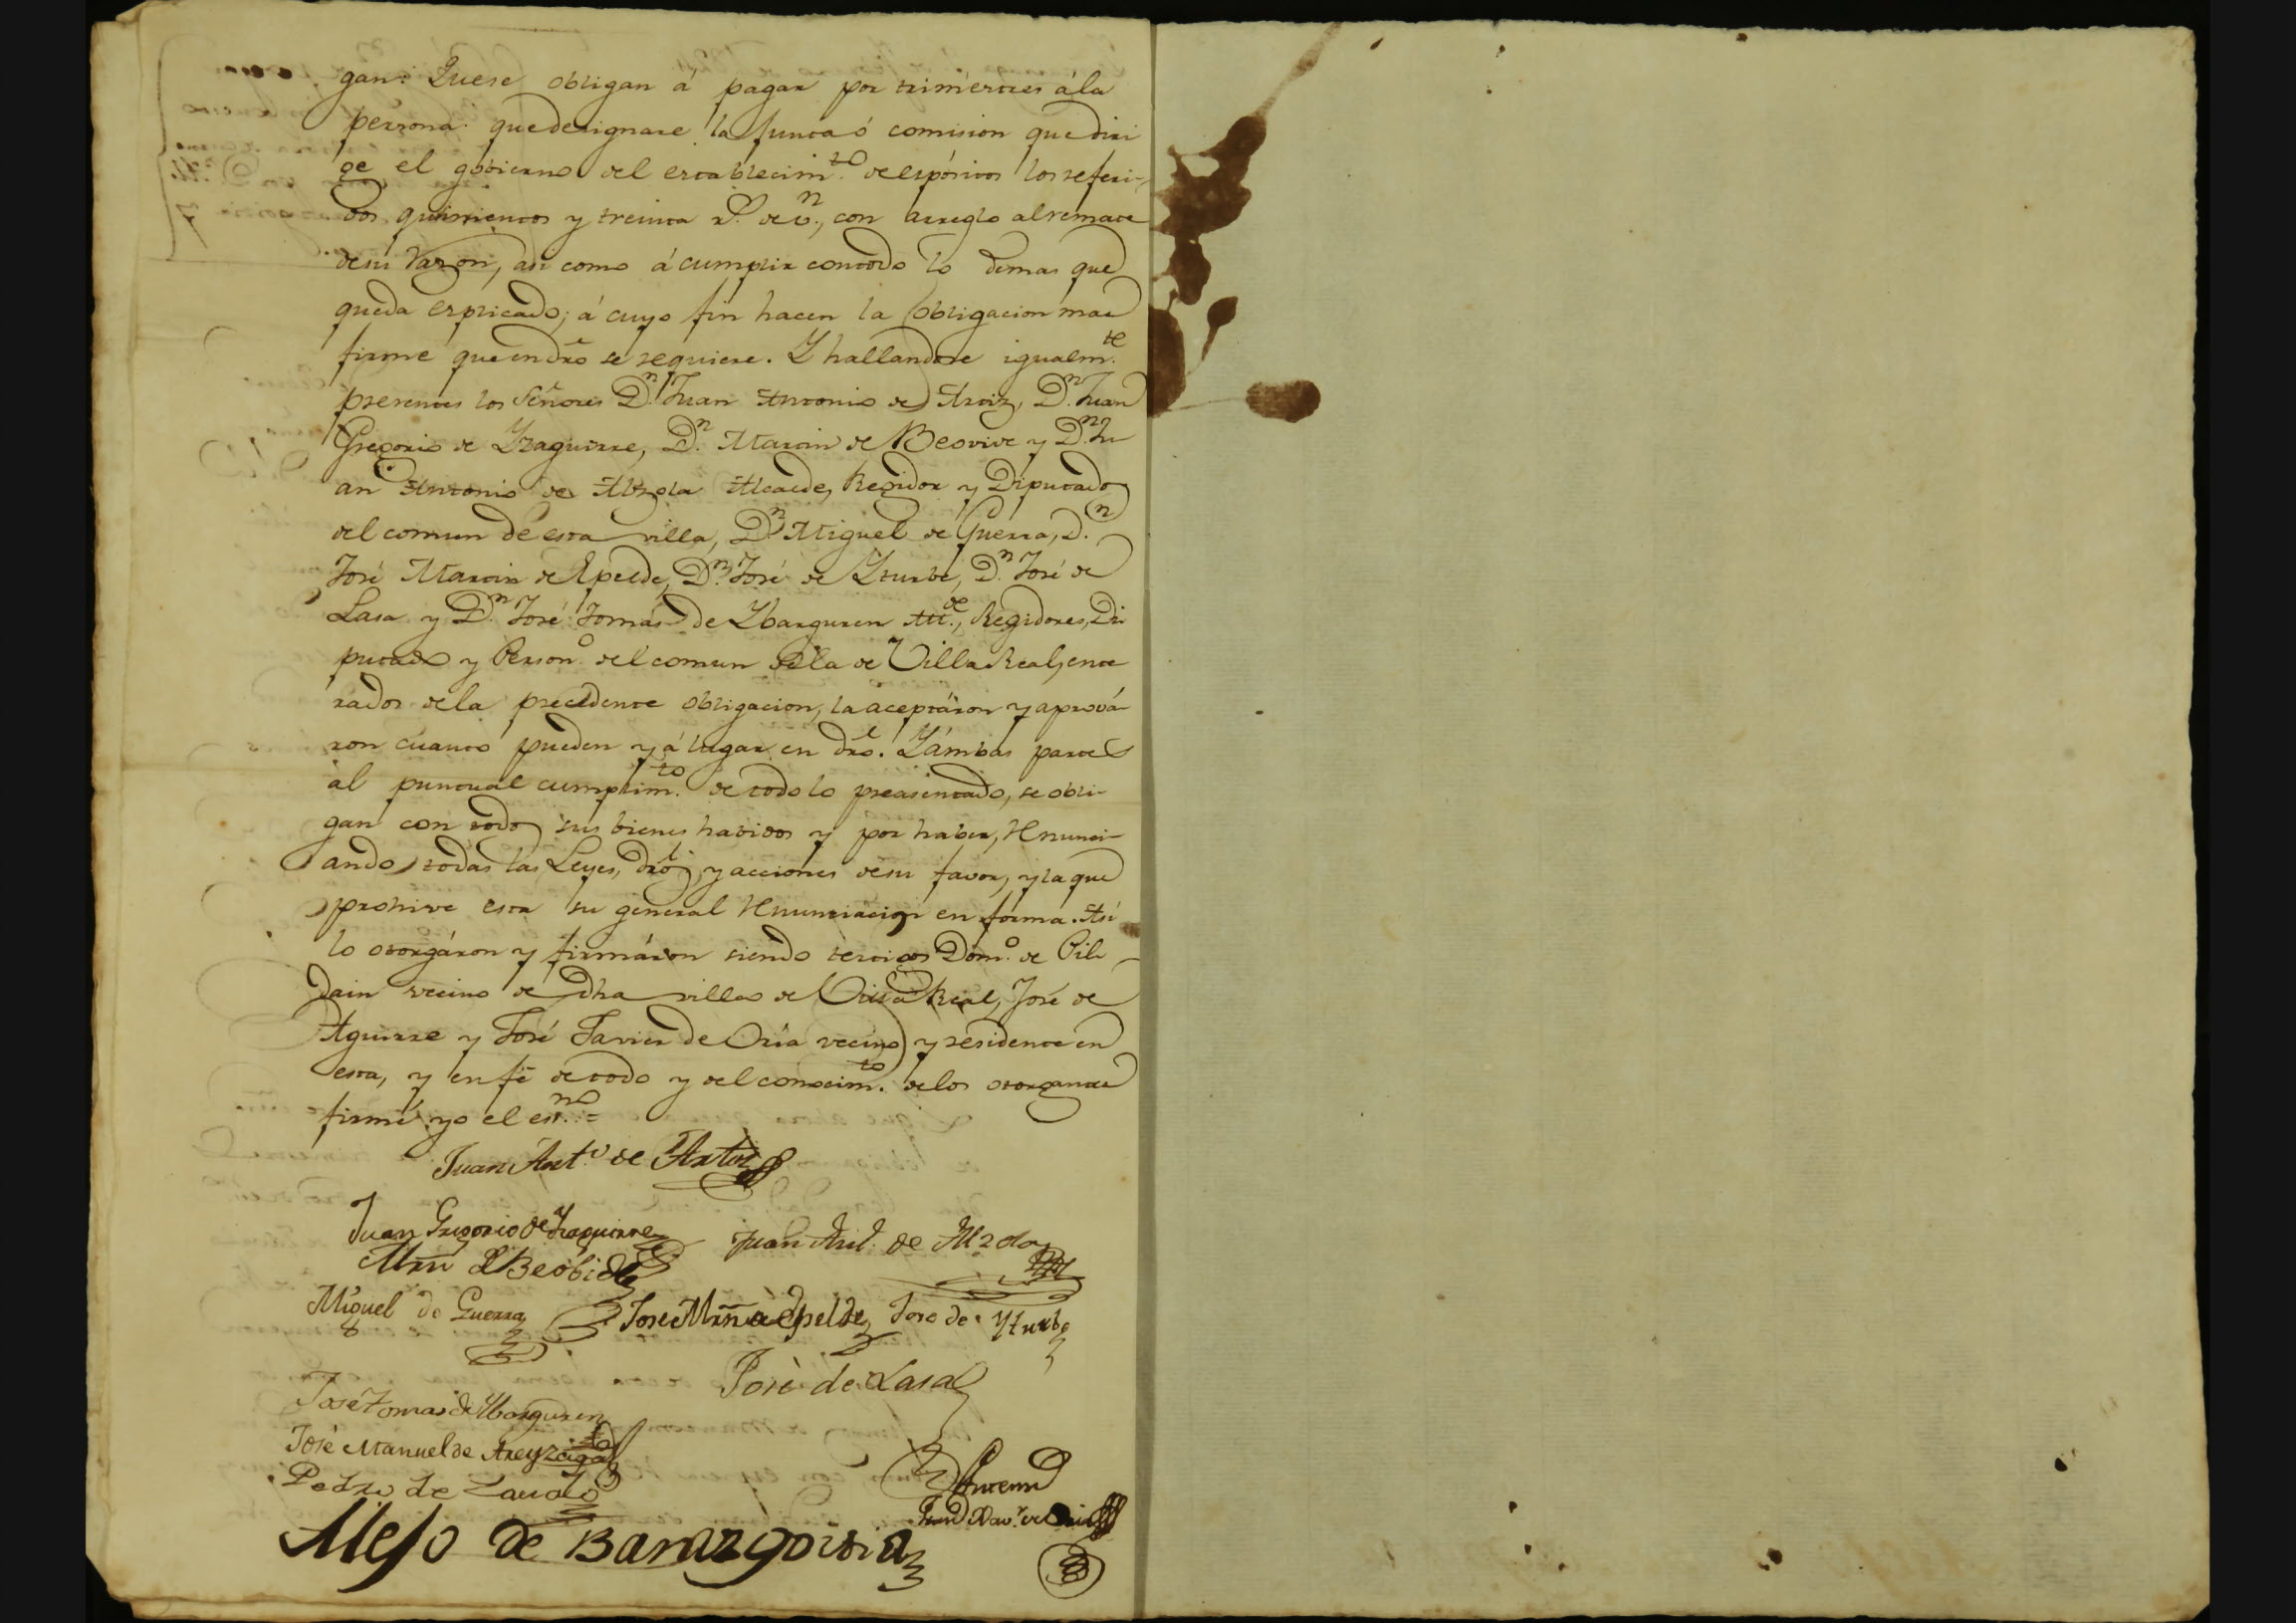 gan: Que se obligan á pagar por trimestres á la
persona que designare la Junta ó comision que diri
ge el gobierno del establecim.to de espósitos los referi-
dos quinientos y treinta r.s de v.n, con arreglo al remate
de su razon, asi como á cumplir con todo lo demas que
queda esplicado; á cuyo fin hacen la obligacion mas
firme que en dro se requiere. Y hallandose igualm.te
presentes los Señores D.n Juan Antonio de Artiz, D.n Juan
Gregorio de Yzaguirre, D.n Martin de Beovide y D.n Ju
an Antonio de Alzola Alcalde, Regidor y Diputados
del comun de esta villa, D.n Miguel de Guerra, D.n
José Martin de Epelde, D.n José de Yturbe, D.n José de
Lasa y D.n José Tomás de Ybarguren Al.de, Regidores, Di
putado y Person.o del comun de la de Villa Real, ente
rados de la precedente obligacion, la aceptáron y aprová-
ron cuanto pueden y á lugar en dro. Y ámbas partes
al puntual cumplim.to de todo lo preasentado, se obli-
gan con todos sus bienes havidos y por haber, renunci-
ando todas las Leyes, dros, y acciones de su favor, y la que
prohive esta su general renunciacion en forma. Asi
lo otorgáron y firmáron siendo testigos Dom.o de Pil-
dain vecino de dha villa de Villa Real, José de
Aguirre y José Javier de Oria vecino y residente en
esta, y en fé de todo y del conocim.to de los otorgantes
firmé yo el es.no =
Juan Ant.o de Artiz
Juan Gregorio de Yzaguirre Juan Ant. de Alzola
Mrn de Beobide
Miguel de Guerra José Mrn de Epelde José de Yturbe
José de Lasa
José Tomas de Ybarguren
José Manuel de Areyzaga
Pedro de
Antemi
Alejo de